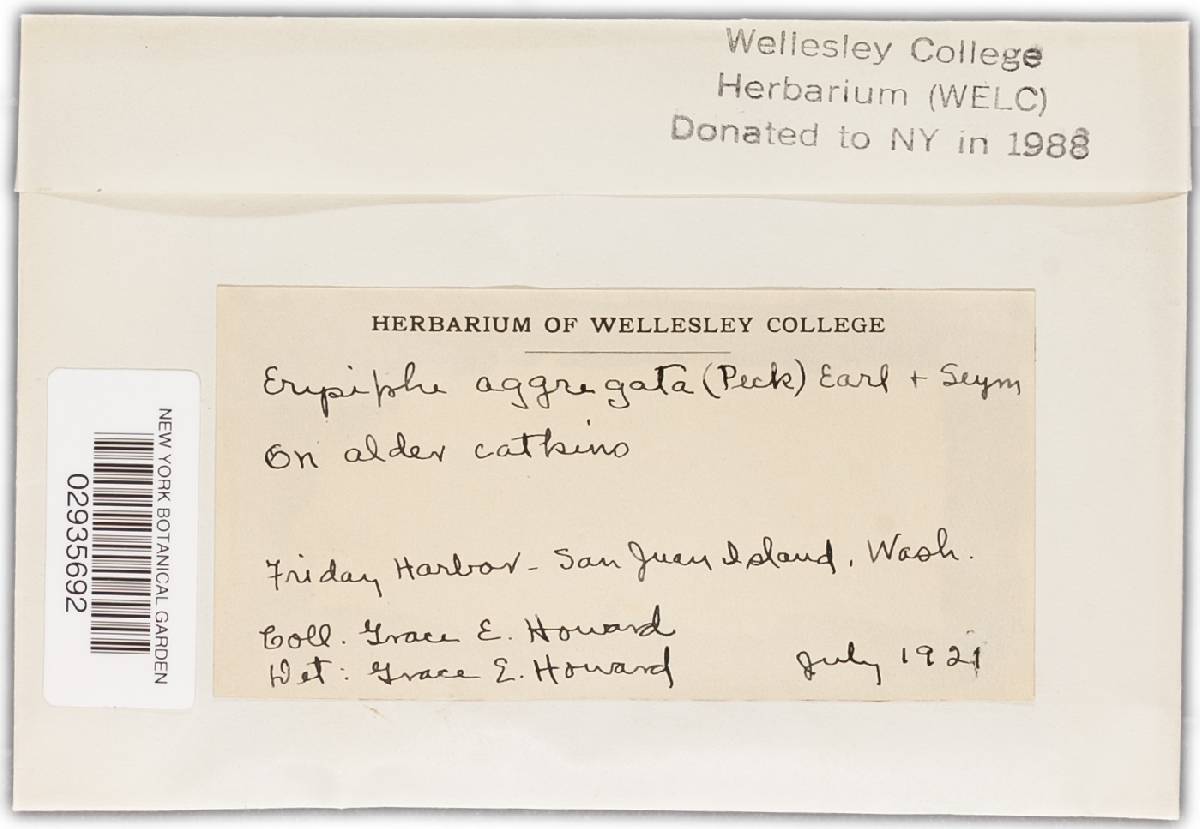 Wellesley College
Herbarium (WELC)
Donated to NY in 1988
HERBARIUM OF WELLESLEY COLLEGE
Erysiphe aggregata (Peck) Earl + Seym
On alder catkins
Friday Harbor - San Juan Island, Wash.
Coll. Grace E. Howard
Det: Grace E. Howard July 1921
NEW YORK BOTANICAL GARDEN
02935692